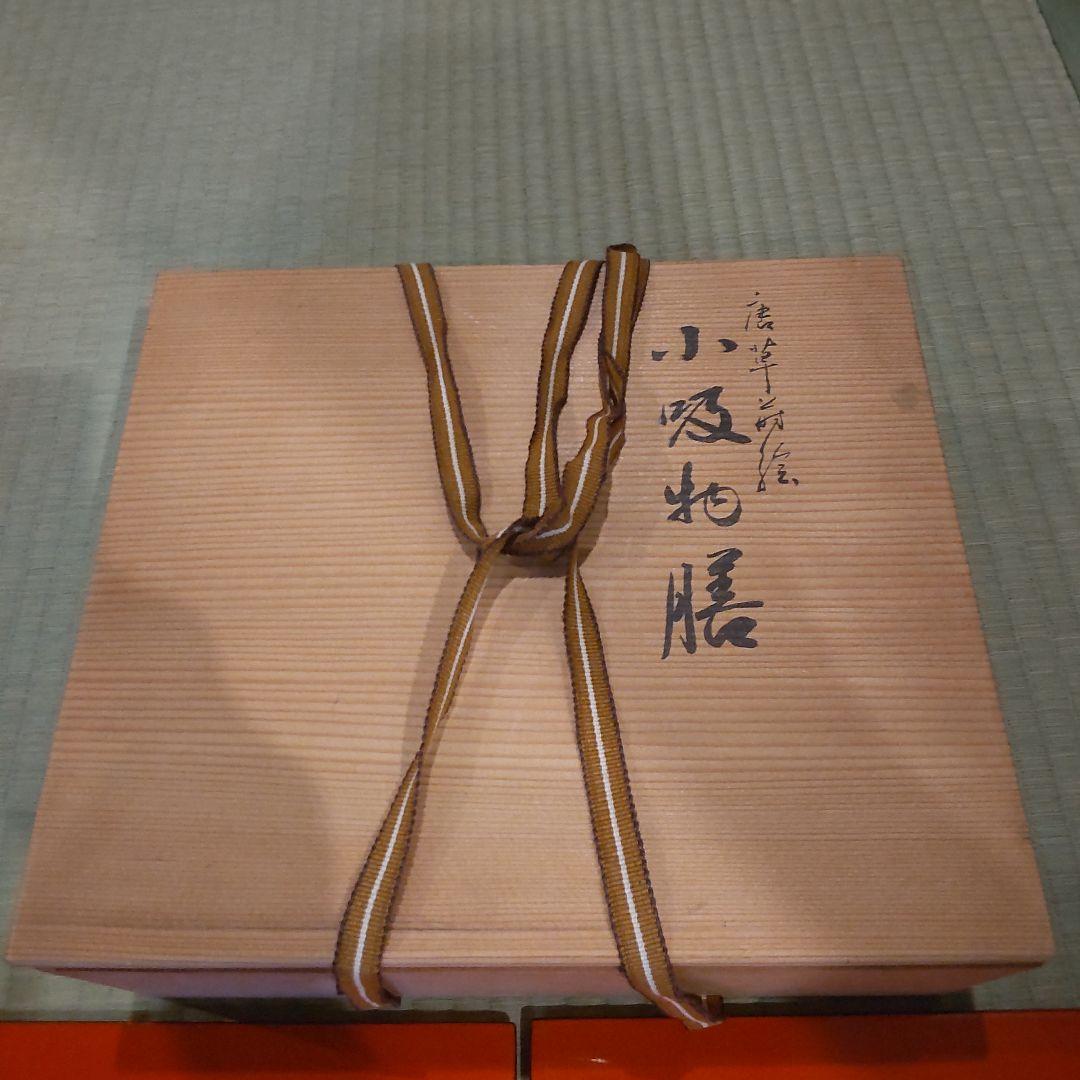 唐草蒔絵
小吸物膳